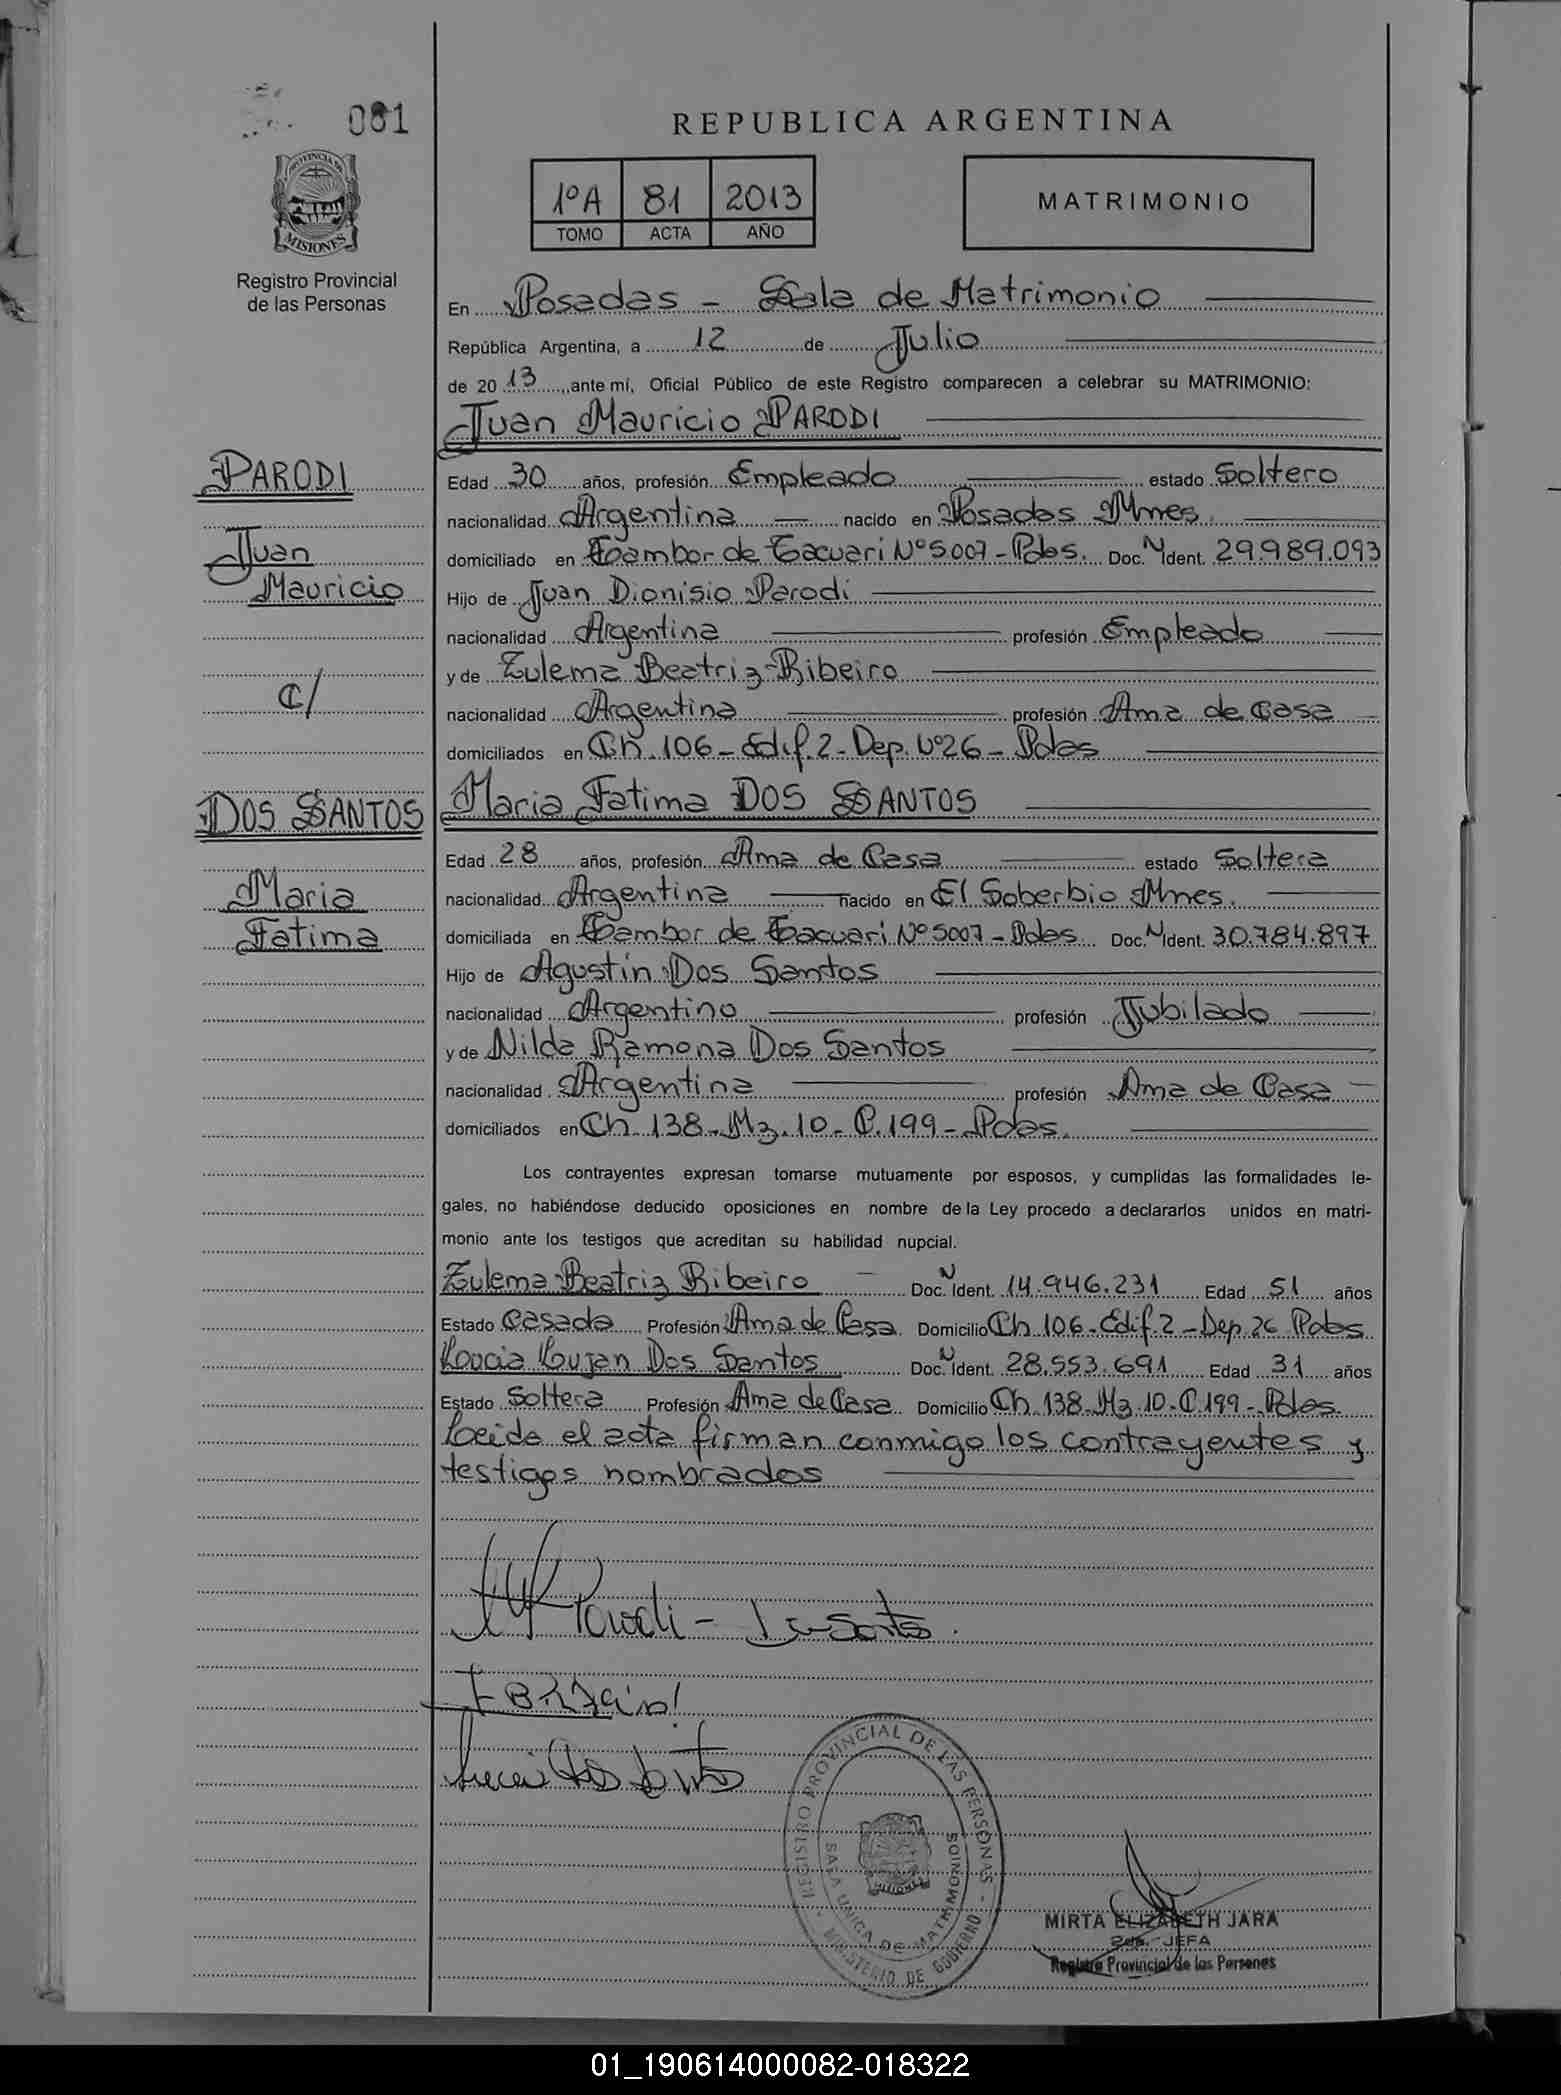 081
REPUBLICA ARGENTINA
1ºA 81 2013
TOMO ACTA AÑO
MATRIMONIO
PROVINCIA DE
MISIONES
Registro Provincial
de las Personas
En Posadas - Sala de Matrimonio
República Argentina, a 12 de Julio
de 2013, ante mí, Oficial Público de este Registro comparecen a celebrar su MATRIMONIO:
Juan Mauricio PARODI
PARODI
Juan
Mauricio
C/
DOS SANTOS
Maria
Fatima
Edad 30 años, profesión Empleado estado Soltero
nacionalidad Argentina nacido en Posadas Mnes.
domiciliado en Tambor de Tacuari Nº 5.007 - Pdas. Doc. N Ident. 29.989.093
Hijo de Juan Dionisio Parodi
nacionalidad Argentina profesión Empleado
y de Zulema Beatriz Ribeiro
nacionalidad Argentina profesión Ama de Casa
domiciliados en Ch. 106 - Edif. 2 - Dep. Nº 26 - Pdas
Maria Fatima DOS SANTOS
Edad 28 años, profesión Ama de Casa estado Soltera
nacionalidad Argentina nacido en El Soberbio Mnes.
domiciliada en Tambor de Tacuari Nº 5007 - Pdas Doc. N Ident. 30.784.897
Hijo de Agustin Dos Santos
nacionalidad Argentino profesión Jubilado
y de Nilda Ramona Dos Santos
nacionalidad Argentina profesión Ama de Casa
domiciliados en Ch. 138 - Mz. 10 - C. 199 - Pdas.
Los contrayentes expresan tomarse mutuamente por esposos, y cumplidas las formalidades le-
gales, no habiéndose deducido oposiciones en nombre de la Ley procedo a declararlos unidos en matri-
monio ante los testigos que acreditan su habilidad nupcial.
Zulema Beatriz Ribeiro Doc. N Ident. 14.946.231 Edad 51 años
Estado Casada Profesión Ama de Casa Domicilio Ch 106 - Edif. 2 - Dep. 26 Pdas
Lucia Lujan Dos Santos Doc. N Ident. 28.553.691 Edad 31 años
Estado Soltera Profesión Ama de Casa Domicilio Ch. 138 - Mz. 10 - C. 199 - Pdas.
Leida el acta firman conmigo los contrayentes y
testigos nombrados
Parodi -
REGISTRO PROVINCIAL DE LAS PERSONAS - MINISTERIO DE GOBIERNO -
SALA UNICA DE MATRIMONIOS
MISIONES
MIRTA ELIZABETH JARA
2da. JEFA
Registro Provincial de las Personas
01_190614000082-018322